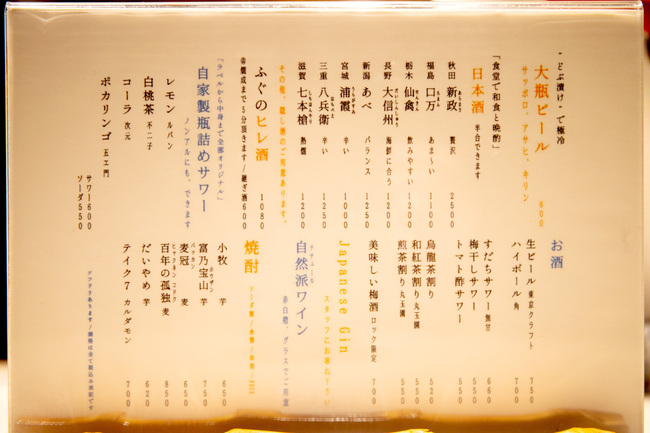 "どぶ漬け"で極冷
大瓶ビール 600
サッポロ、アサヒ、キリン
「食堂で和食と晩酌」
日本酒 半合できます
秋田 新政 贅沢 2500
福島 口万 あま〜い 1100
栃木 仙禽 飲みやすい 1200
長野 大信州 海鮮に合う 1200
新潟 あべ バランス 1250
宮城 浦霞 辛い 1000
三重 八兵衛 辛い 1250
滋賀 七本槍 熟燗 1200
その他、隠し酒のご用意あります。
ふぐのヒレ酒 1080
「ラベルから中身まで全部オリジナル」
自家製瓶詰めサワー
ノンアルにも、できます
レモン ルパン
白桃茶 不二子
コーラ 次元
ポカリンゴ 五ェ門
サワー600
ソーダ550
お酒
生ビール 東京クラフト 750
ハイボール 角 700
すだちサワー 無甘 660
梅干しサワー 550
トマト酢サワー 550
烏龍茶割り 520
和紅茶割り 丸玉園 550
煎茶割り 丸玉園 550
美味しい梅酒 ロック限定 700
Japanese Gin
スタッフにお尋ね下さい
ナチュール
自然派ワイン
赤白橙、グラスでご用意
焼酎
小牧 芋 650
富乃宝山 芋 750
麦冠 麦 650
百年の孤独 麦 850
だいやめ 芋 620
テイク7 カルダモン 700